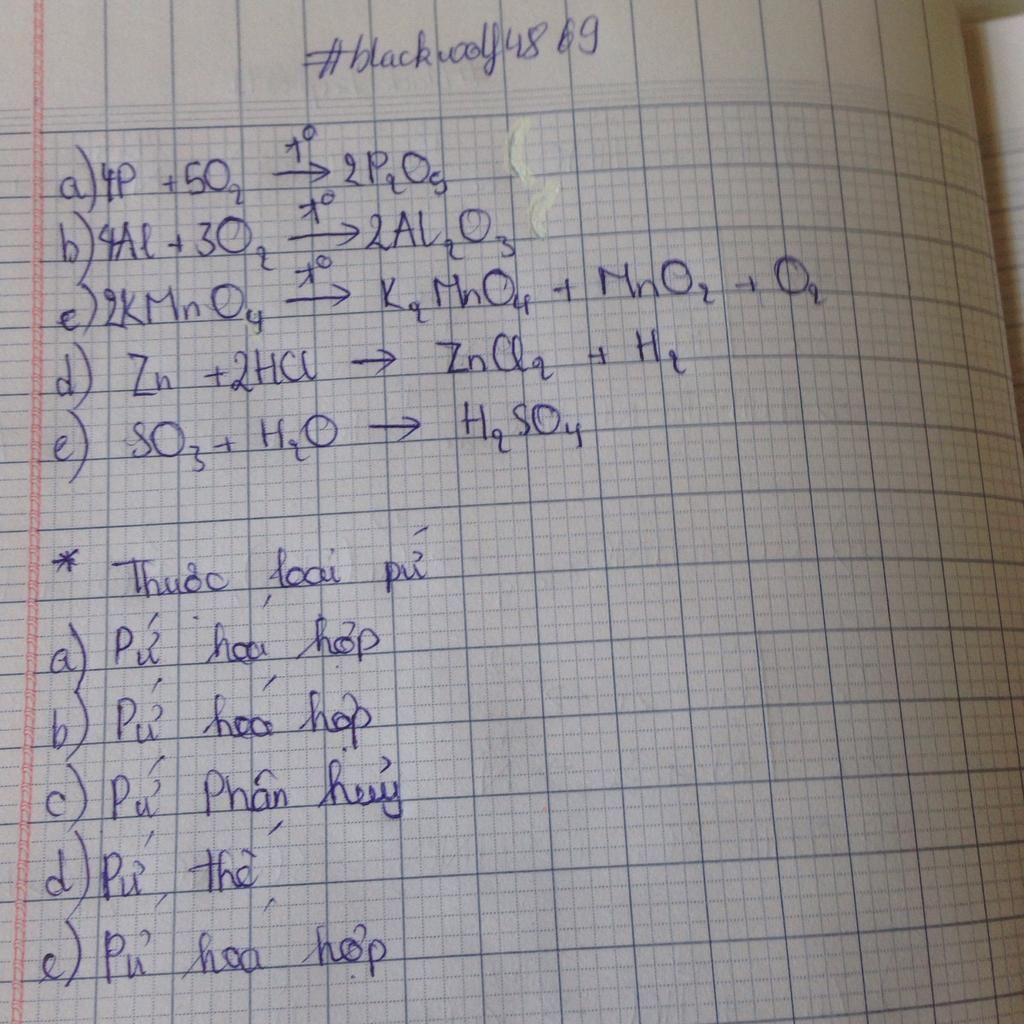 #blackwolf4869
a) 4P + 5O₂ t° → 2P₂O₅
b) 4Al + 3O₂ t° → 2Al₂O₃
c) 2KMnO₄ t° → K₂MnO₄ + MnO₂ + O₂
d) Zn + 2HCl → ZnCl₂ + H₂
e) SO₃ + H₂O → H₂SO₄
* Thuộc loại pứ
a) Pứ hoá hợp
b) Pứ hoá hợp
c) Pứ Phân huỷ
d) Pứ thế
e) Pứ hoá hợp